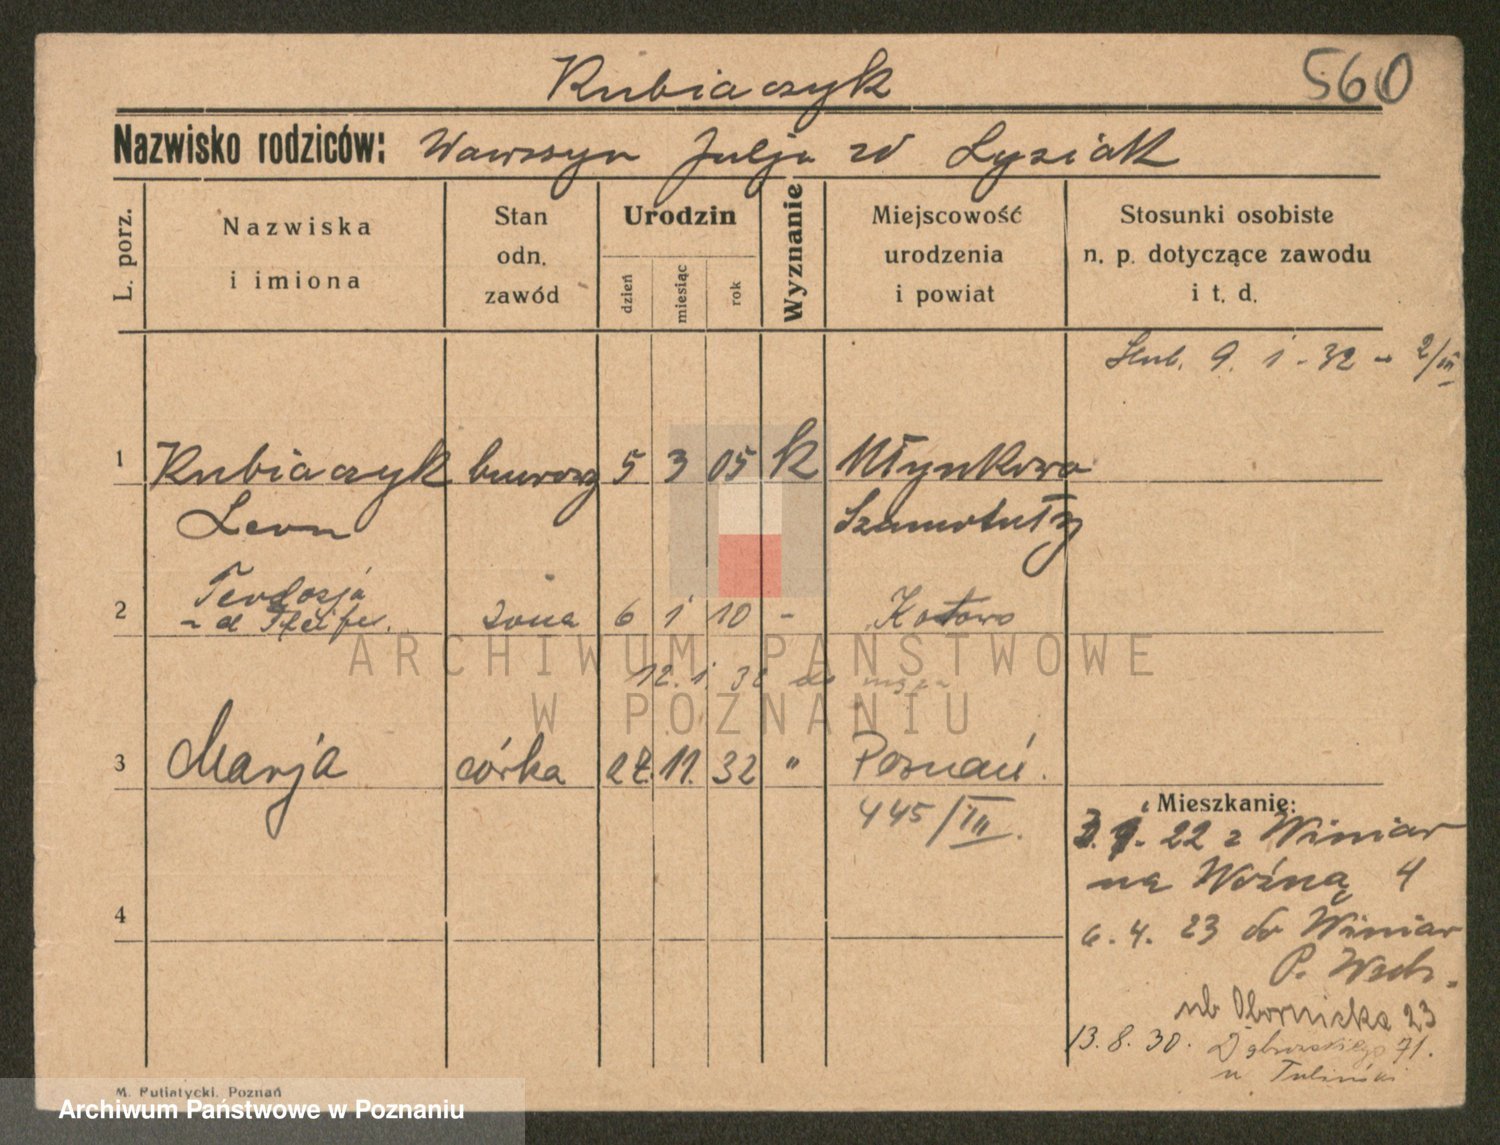 Kubiaczyk 560
Nazwisko rodziców: Wawrzyn Julja zd Łyziak
L. porz.
Nazwiska
i imiona
Stan
odn.
zawód
Urodzin
dzień
miesiąc
rok
Wyznanie
Miejscowość
urodzenia
i powiat
Stosunki osobiste
n. p. dotyczące zawodu
i t. d.
9. 1 - 32 - 2/III
1 Kubiaczyk 5 3 05 k Młynkowo
Leon Szamotuły
Teodozja
2 żona 6 1 10 - Kotowo
12. 1. 32 do męża
3 Marja córka 11. 32 " Poznań.
445/III.
Mieszkanie:
22 z Winiar
na Woźną 4
4
6. 4. 23 do Winiar
P. Wsch.
Obornicka 23
13. 8. 30. Dąbrowskiego 71.
u
M. Putiatycki, Poznań
ARCHIWUM PAŃSTWOWE
W POZNANIU
Archiwum Państwowe w Poznaniu